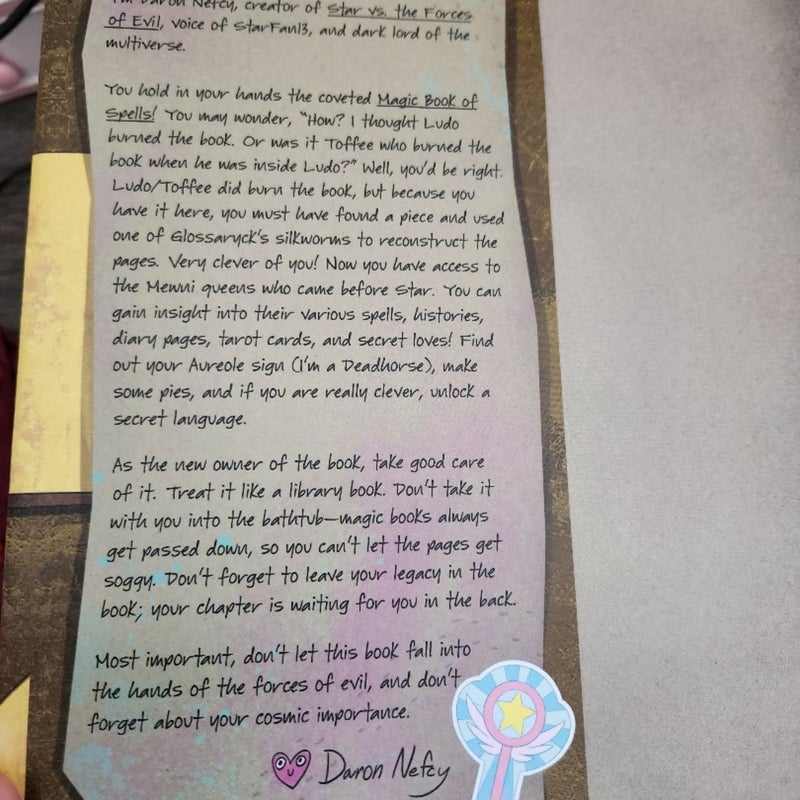 I'm Daron Nefcy, creator of Star vs. the Forces
of Evil, voice of StarFan13, and dark lord of the
multiverse.
You hold in your hands the coveted Magic Book of
Spells! You may wonder, "How? I thought Ludo
burned the book. Or was it Toffee who burned the
book when he was inside Ludo?" Well, you'd be right.
Ludo/Toffee did burn the book, but because you
have it here, you must have found a piece and used
one of Glossaryck's silkworms to reconstruct the
pages. Very clever of you! Now you have access to
the Mewni queens who came before Star. You can
gain insight into their various spells, histories,
diary pages, tarot cards, and secret loves! Find
out your Aureole sign (I'm a Deadhorse), make
some pies, and if you are really clever, unlock a
secret language.
As the new owner of the book, take good care
of it. Treat it like a library book. Don't take it
with you into the bathtub—magic books always
get passed down, so you can't let the pages get
soggy. Don't forget to leave your legacy in the
book; your chapter is waiting for you in the back.
Most important, don't let this book fall into
the hands of the forces of evil, and don't
forget about your cosmic importance.
Daron Nefcy